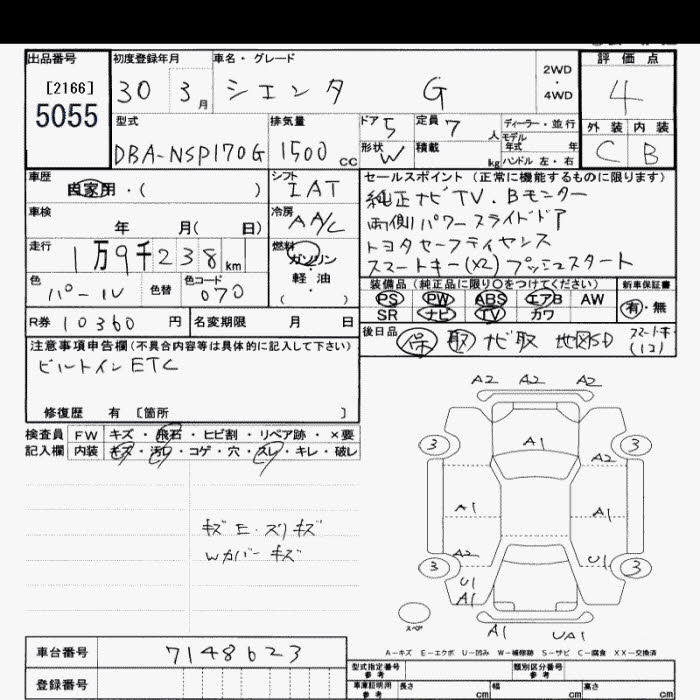 出品番号 初度登録年月 車名・グレード 評価点
[2166] 30 3月 シエンタ G 2WD・4WD 4
5055
型式 排気量 ドア 5 定員 7人 ディーラー・並行 外装 内装
DBA-NSP170G 1500cc 形状 W 積載 kg モデル年式 年 ハンドル 左・右 C B
車歴 自家用・( ) シフト IAT
セールスポイント (正常に機能するものに限ります)
純正ナビTV.Bモニター
両側パワースライドドア
トヨタセーフティセンス
スマートキー(x2) プッシュスタート
車検 年 月( 日) 冷房 AA/C
走行 1万9千238km 燃料 ガソリン・軽油・( )
色 パール 色替 色コード 070
装備品 (純正品に限り○をつけてください) 新車保証書
PS PW ABS エアB AW 有・無
SR ナビ TV カワ
R券 10360円 名変期限 月 日
後日品 保 取 ナビ取 地図SD スマートキー(1コ)
注意事項申告欄(不具合内容等は具体的に記入して下さい)
ビルトインETC
修復歴 有 [箇所 ]
検査員 FW キズ・飛石・ヒビ割・リペア跡・×要
記入欄 内装 キズ・汚レ・コゲ・穴・スレ・キレ・破レ
キズE・スリキズ
Wカバーキズ
A2 A2 A2
3 A1 3
A2
A1 A1
A2 U1
3 3
U1
A1
スペア A1 UA1
A-キズ E-エクボ U-凹み W-補修跡 S-サビ C-腐食 XX-交換済
車台番号 7148623
登録番号
型式指定番号 参考 類別区分番号 参考
車庫証明用 参考 長さ cm 幅 cm 高さ cm